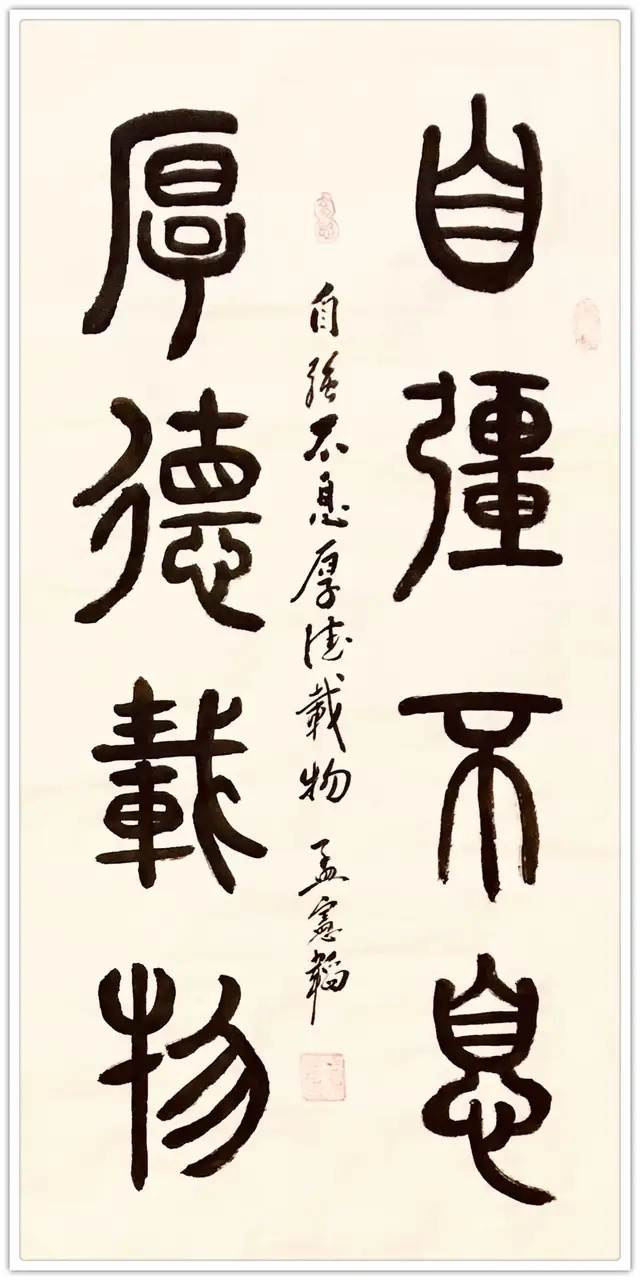 自彊不息
自强不息厚德載物 孟憲韜
厚德載物